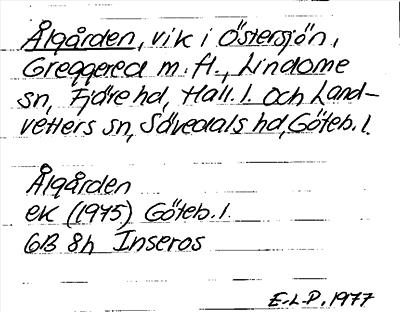 Ålgården, vik i Östersjön,
Greggered m. fl., Lindome
sn, Fjäre hd, Hall. l. och Land-
vetters sn, Sävedals hd, Göteb. l.
Ålgården
ek (1975) Göteb. l.
6B 8h Inseros
E.L-P. 1977